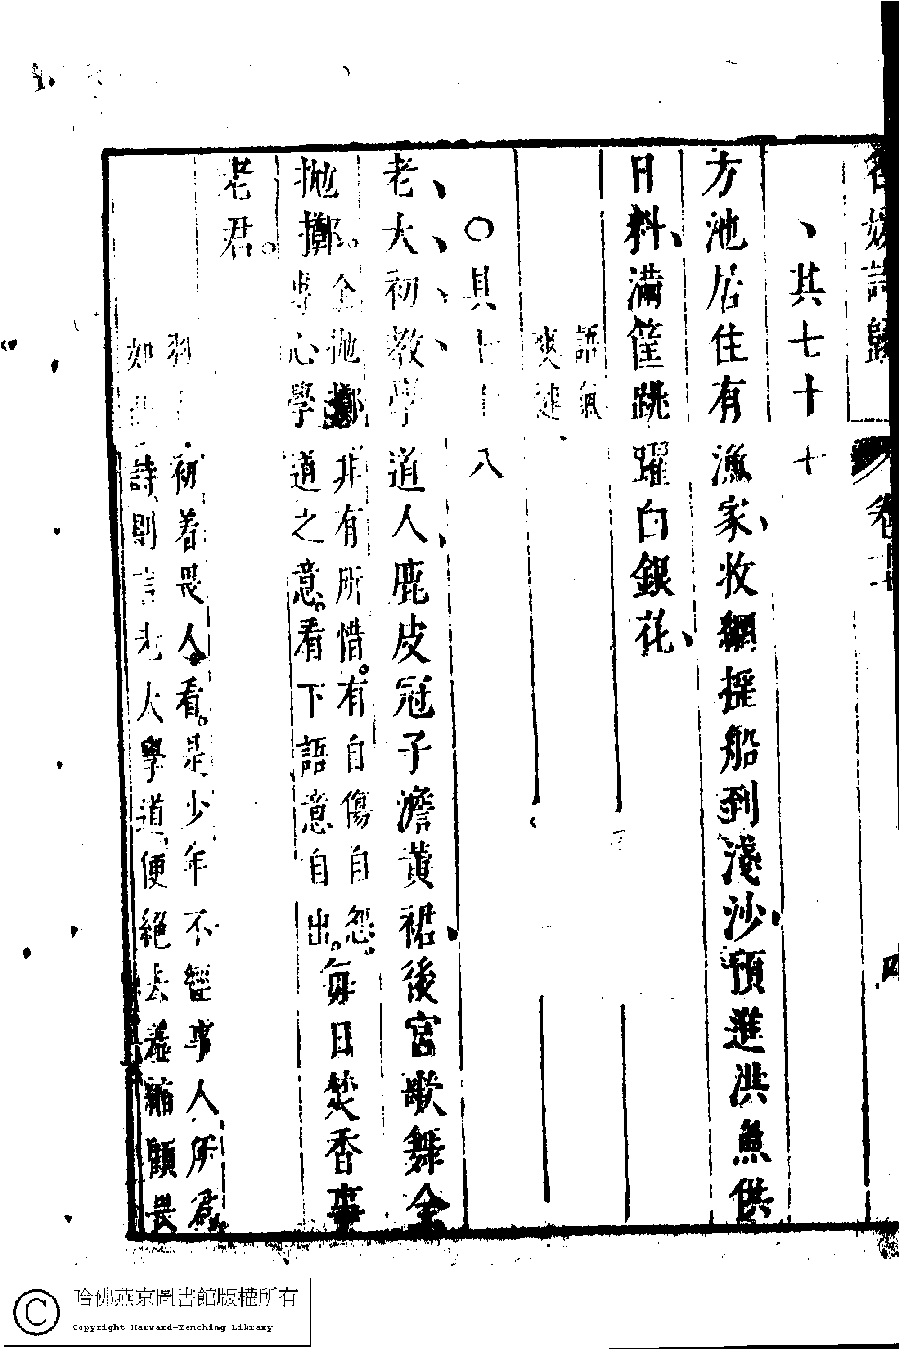 名媛詩歸
卷十
四
其七十七
方池居住有漁家收網揺船到淺沙預進洪魚供
日料滿筐跳躍白銀花
語氣
爽達
〇其七十八
老大初教學道人鹿皮冠子澹黄裙後宮歌舞全
拋擲全拋擲非有所惜有自傷自怨
專心學道之意看下語意自出每日焚香事
老君
初着畏人看是少年不經事人所爲
如此詩則言老大學道便絶去羞縮顧畏
哈佛燕京圖書館版權所有
Copyright Harvard-Yenching Library